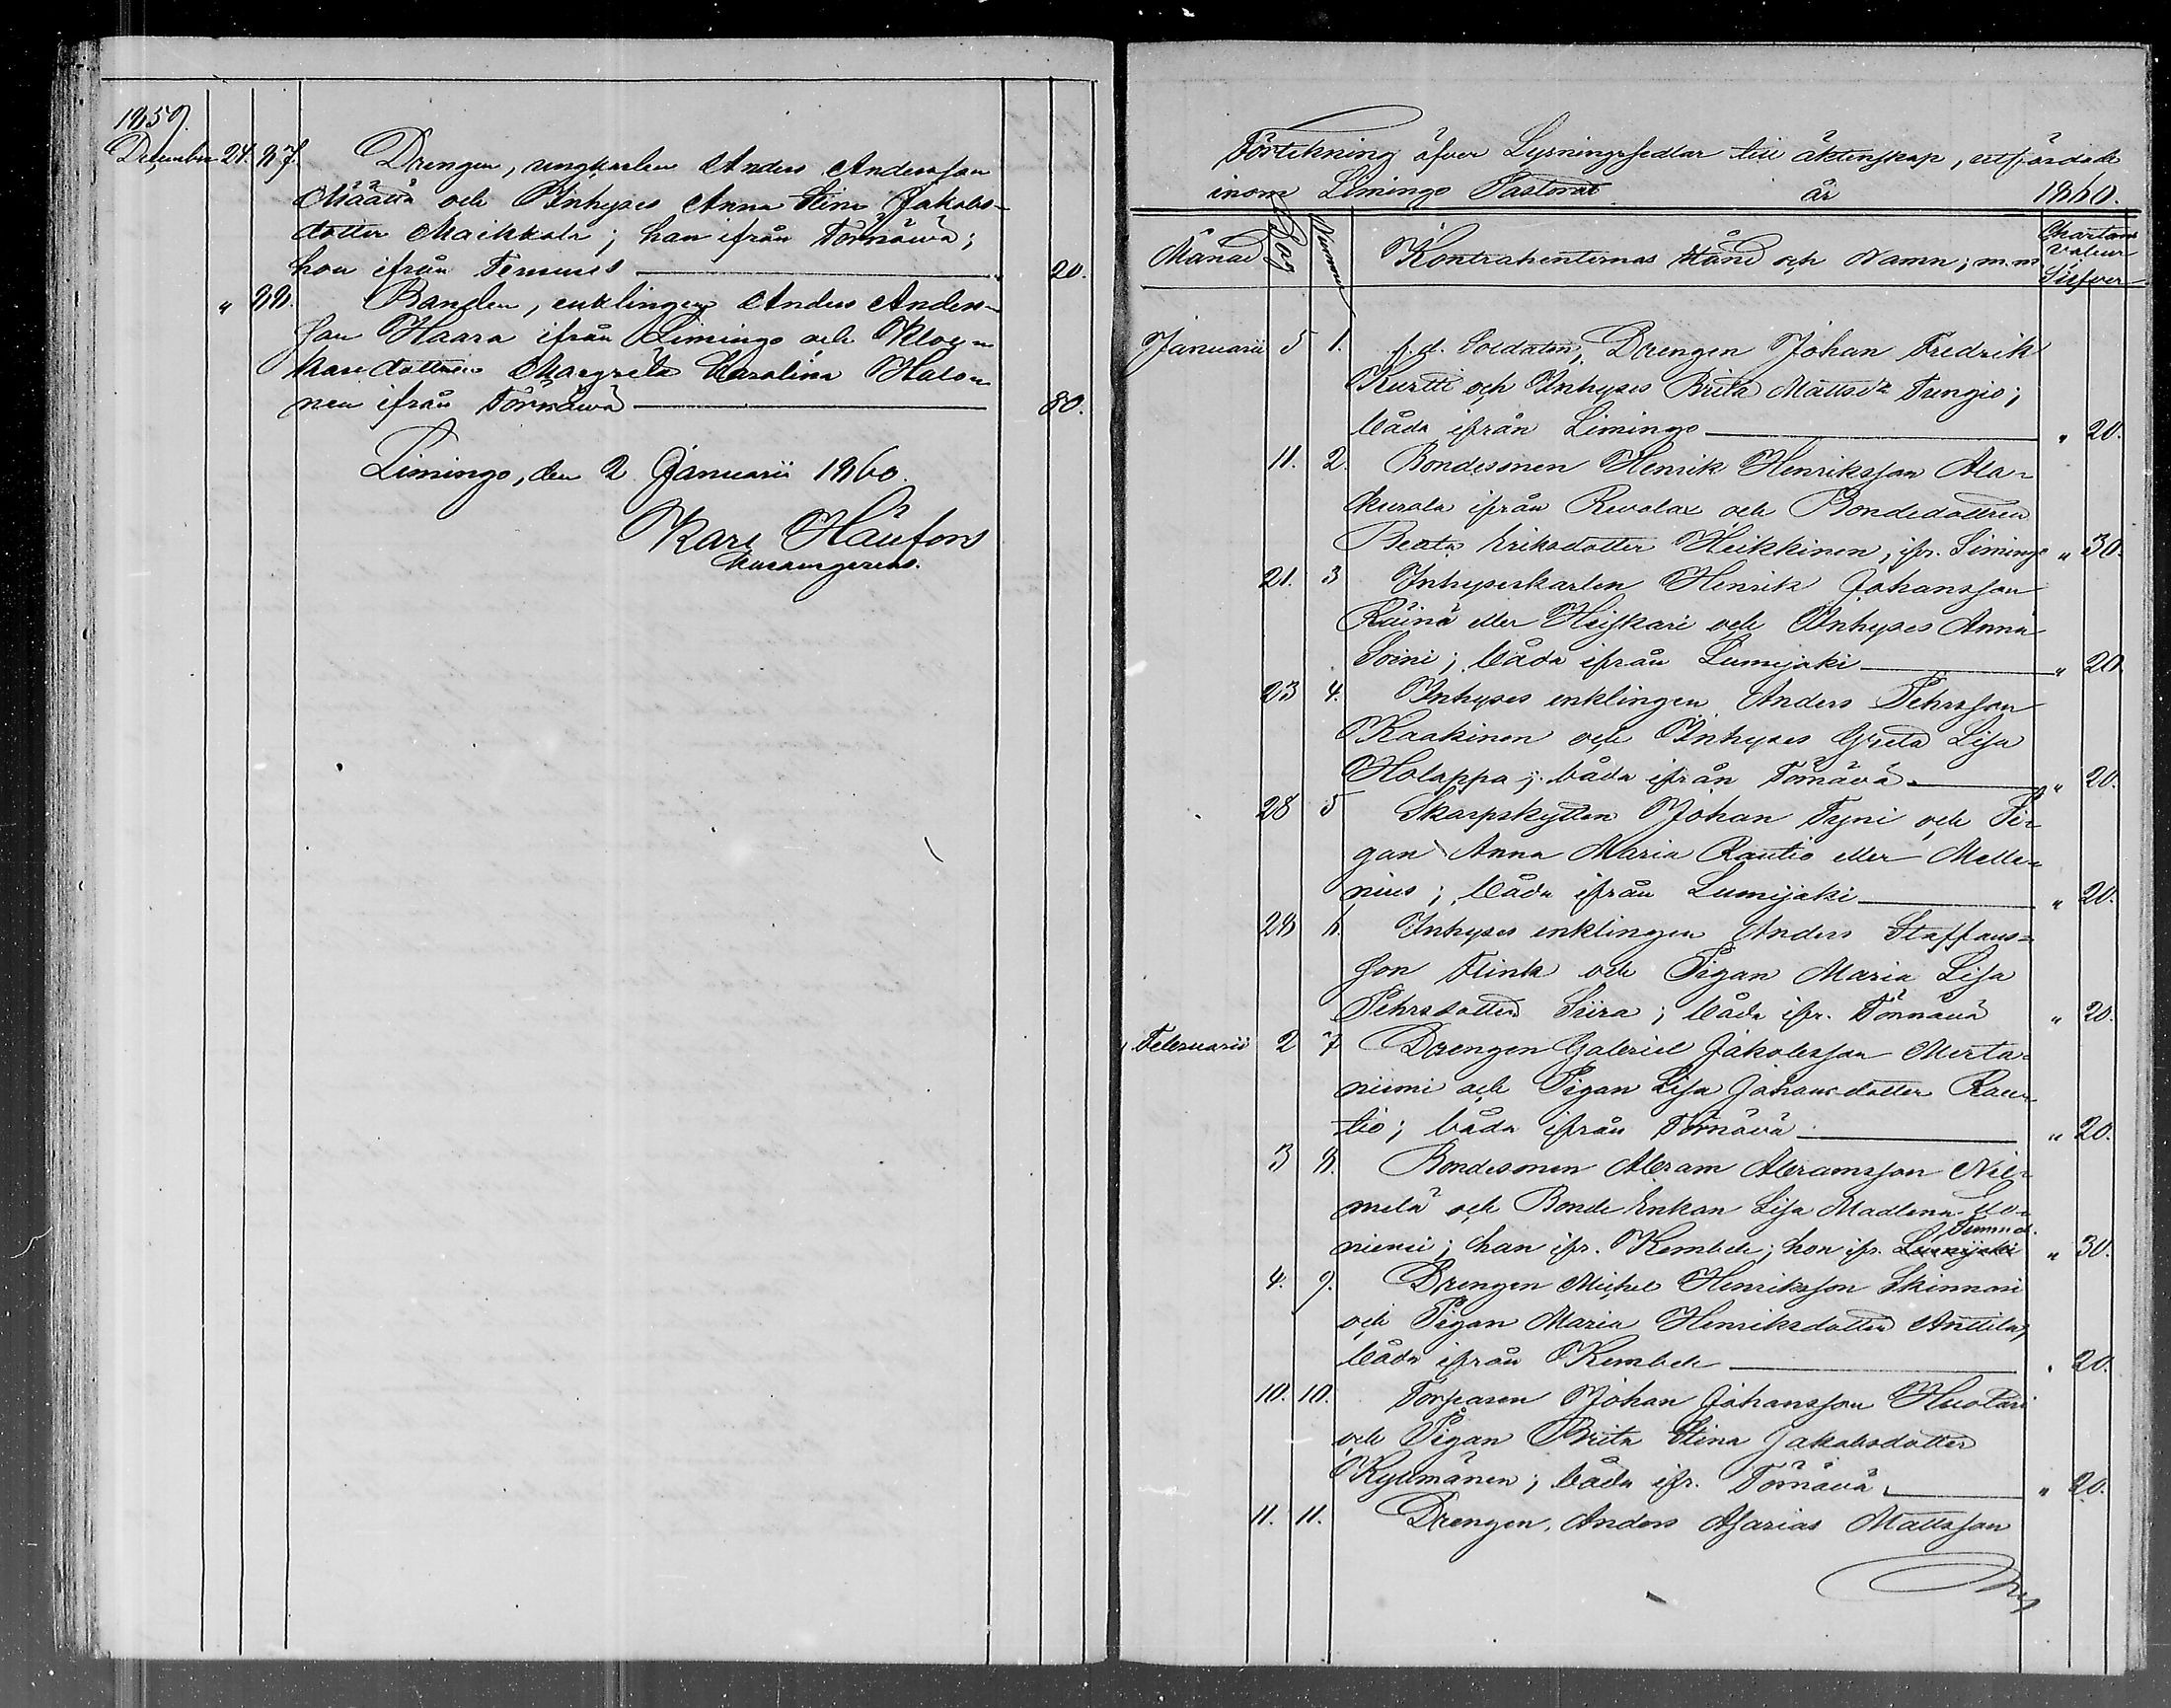 1859.
December 24. 87. Drengen, ungkarlen Anders Andersson
Määttä och Inhyses Anna Stina Jakobs-
dotter Maikkola; han ifrån Törnävä;
hon ifrån Temmes " 20.
" 88. Bonden, enklingen Anders Anders-
son Haara ifrån Limingo och Kloc-
karedottren Margreta Karolina Halo-
nen ifrån Törnävä 80.
Limingo, den 2 Januarii 1860.
Karl
Förtekning öfver Lysningssedlar till äktenskap, utfärdade
inom Limingo Pastorat år 1860.
Månad Dag Numer Kontrahenternas stånd och Namn; m.m. Chartæ Valeur Silfver
Januarii 5 1. f.d. Soldaten, Drengen Johan Fredrik
Kurtti och Inhyses Brita Mattsdr Tungio;
båda ifrån Limingo " 20.
11. 2. Bondesonen Henrik Henriksson Ala-
kurala ifrån Revolax och Bondedottren
Beata Eriksdotter Heikkinen, ifr. Limingo " 30.
21. 3 Inhyseskarlen Henrik Johansson
Räinä eller Heiskari och Inhyses Anna
Soini; båda ifrån Lumijoki " 20.
23 4. Inhyses enklingen Anders Pehrsson
Kaakinen och Inhyses Greta Lisa
Holappa; båda ifrån Törnävä " 20.
28 5 Skarpskytten Johan Tyni och Pi-
gan Anna Maria Rautio eller Melle-
nius; båda ifrån Lumijoki " 20.
28 6. Inhyses enklingen Anders Staffans-
son Flink och Pigan Maria Lisa
Pehrsdotter Siira; båda ifr. Törnävä " 20.
Februarii 2 7 Drengen Gabriel Jakobsson Merta-
niemi och Pigan Lisa Johansdotter Rau-
tio; båda ifrån Törnävä " 20.
3 8. Bondesonen Abram Abramsson Nie-
melä och Bonde Enkan Lisa Madlena
niemi; han ifr. Kembele; hon ifr. Lumijoki Temmes. " 30.
4. 9. Drengen Michel Henriksson Skinnari
och Pigan Maria Henriksdotter Anttila,
båda ifrån Kembele " 20.
10. 10. Torparen Johan Johansson Huotari
och Pigan Brita Stina Jakobsdotter
Kyllmänen; båda ifr. Törnävä " 20.
11. 11. Drengen, Anders Asarias Mattsson